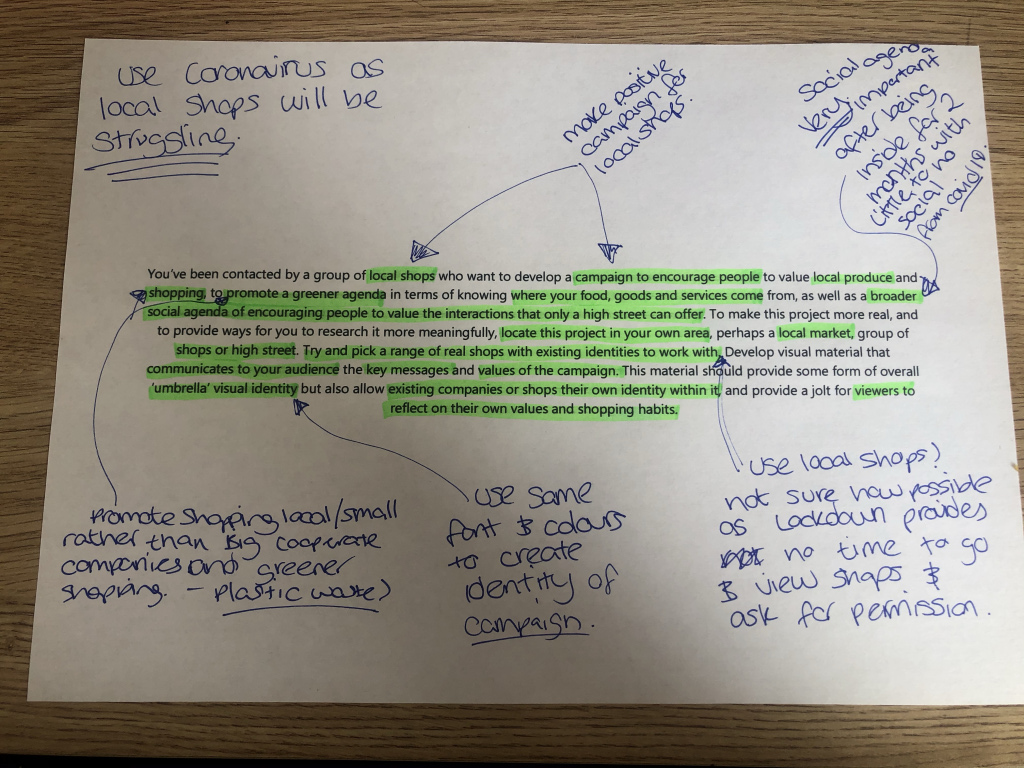 USE Coronavirus as
local shops will be
struggling.
make positive
campaign for
local shops.
Social agenda
very important
after being
inside for 2
months with
little to no
social
from covid19.
You've been contacted by a group of local shops who want to develop a campaign to encourage people to value local produce and
shopping, to promote a greener agenda in terms of knowing where your food, goods and services come from, as well as a broader
social agenda of encouraging people to value the interactions that only a high street can offer. To make this project more real, and
to provide ways for you to research it more meaningfully, locate this project in your own area, perhaps a local market, group of
shops or high street. Try and pick a range of real shops with existing identities to work with. Develop visual material that
communicates to your audience the key messages and values of the campaign. This material should provide some form of overall
'umbrella' visual identity but also allow existing companies or shops their own identity within it, and provide a jolt for viewers to
reflect on their own values and shopping habits.
Promote shopping local/small
rather than big cooperate
companies and greener
shopping. - plastic waste?
USE same
font & colours
to create
identity of
campaign.
USE local shops?
not sure how possible
as Lockdown provides
no time to go
& view shops &
ask for permission.